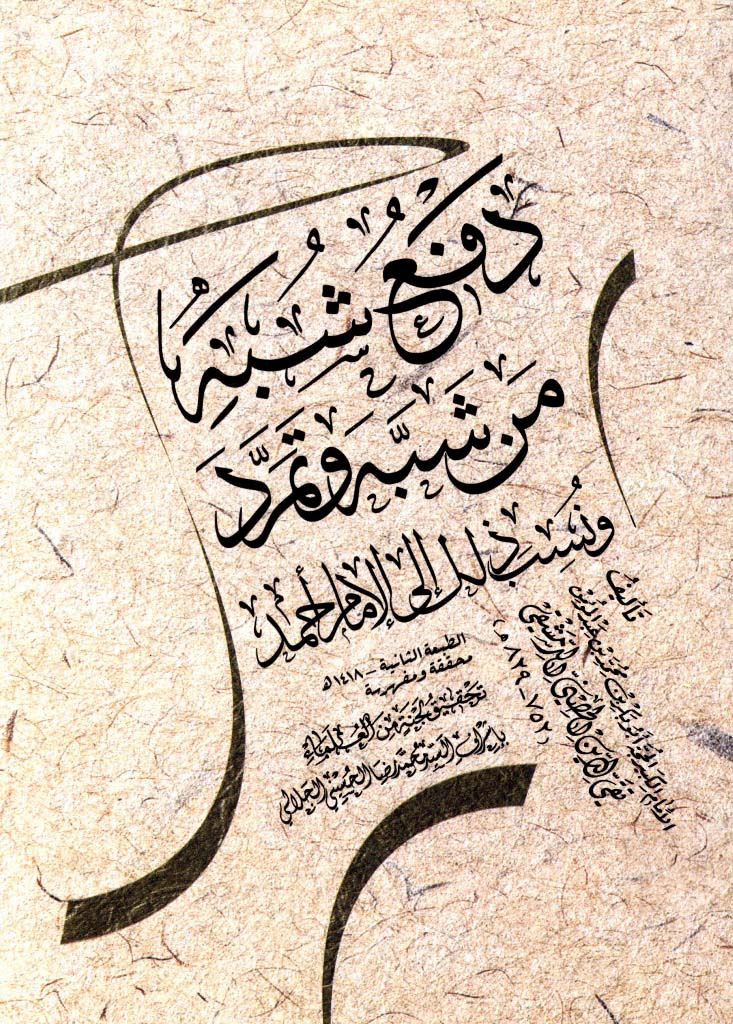 دَفعُ شُبَهِ
مَن شَبَّهَ وَتَمَرَّدَ
ونُسِبَ ذلك إلى الإمام أحمد
تأليف
الإمام الكبير المجتهد أبو بكر بن محمد بن عبد المؤمن
تقي الدين الحصني الدمشقي
(٧٥٢ - ٨٢٩ هـ)
الطبعة الثانية - ١٤١٨هـ
محققة ومفهرسة
تحقيق لجنة من العلماء
بإشراف السيد محمد رضا الحسيني الجلالي